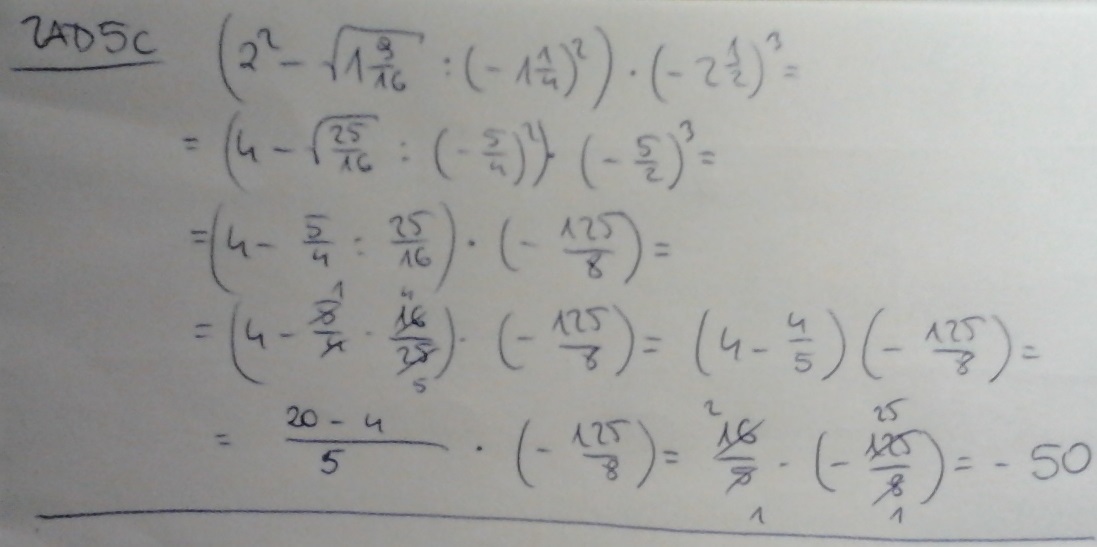 ZAD5C (2² - √(1 9/16) : (-1 1/4)²) · (-2 1/2)³ =
= (4 - √(25/16) : (-5/4)²) · (-5/2)³ =
= (4 - 5/4 : 25/16) · (-125/8) =
= (4 - 5/4 · 16/25) · (-125/8) = (4 - 4/5)(-125/8) =
= (20-4)/5 · (-125/8) = 16/5 · (-125/8) = -50